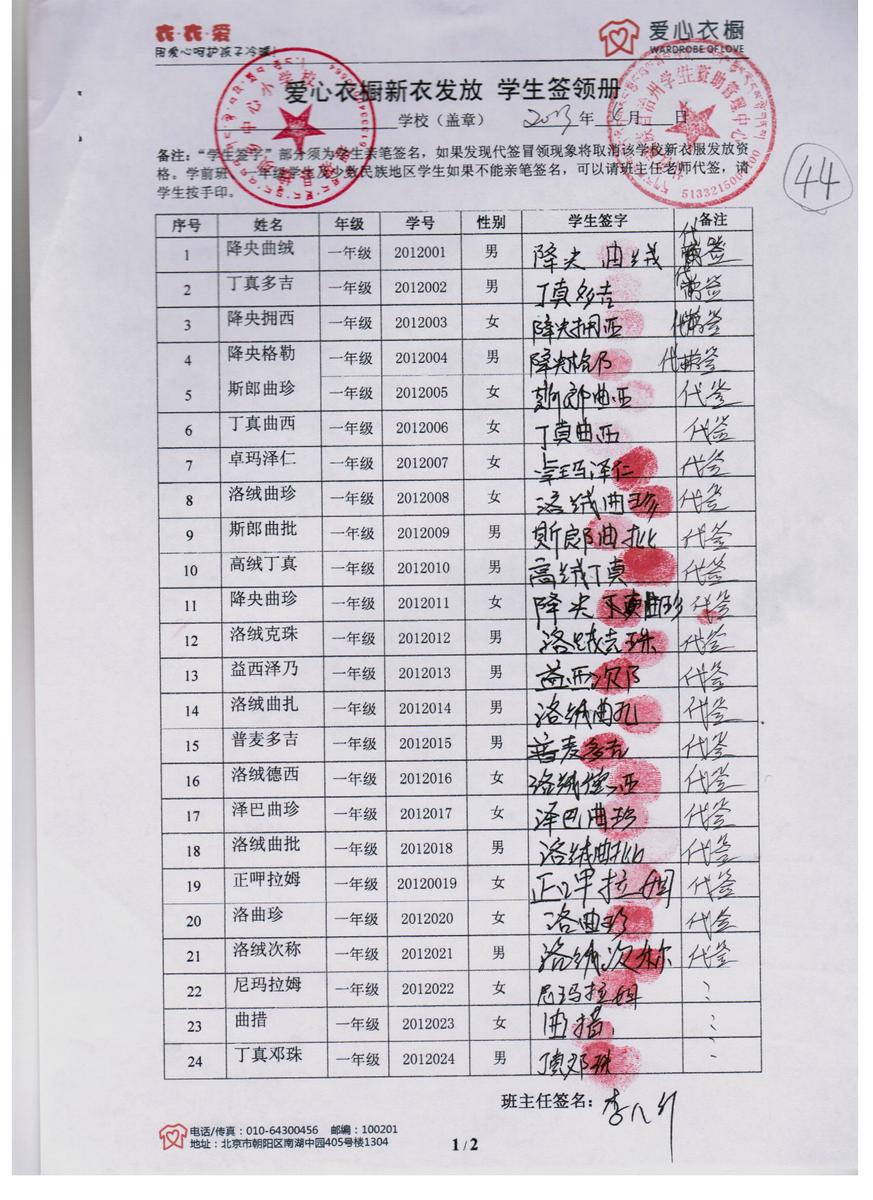 衣·衣·爱
用爱心呵护孩子冷暖!
爱心衣橱
WARDROBE OF LOVE
爱心衣橱新衣发放 学生签领册
学校（盖章） 2013 年 月 日
44
备注：“学生签字”部分须为学生亲笔签名，如果发现代签冒领现象将取消该学校新衣服发放资
格。学前班、一年级学生及少数民族地区学生如果不能亲笔签名，可以请班主任老师代签，请
学生按手印。
5133215000100
序号 姓名 年级 学号 性别 学生签字 备注
1 降央曲绒 一年级 2012001 男 降央曲绒 代签
2 丁真多吉 一年级 2012002 男 丁真多吉 代签
3 降央拥西 一年级 2012003 女 降央拥西 代签
4 降央格勒 一年级 2012004 男 降央格 代签
5 斯郎曲珍 一年级 2012005 女 斯郎曲西 代签
6 丁真曲西 一年级 2012006 女 丁真曲西 代签
7 卓玛泽仁 一年级 2012007 女 卓玛泽仁 代签
8 洛绒曲珍 一年级 2012008 女 洛绒曲珍 代签
9 斯郎曲批 一年级 2012009 男 斯郎曲批 代签
10 高绒丁真 一年级 2012010 男 高绒丁真 代签
11 降央曲珍 一年级 2012011 女 降央曲珍 代签
12 洛绒克珠 一年级 2012012 男 洛绒克珠 代签
13 益西泽乃 一年级 2012013 男 益西 代签
14 洛绒曲扎 一年级 2012014 男 洛绒曲扎 代签
15 普麦多吉 一年级 2012015 男 普麦多吉 代签
16 洛绒德西 一年级 2012016 女 洛绒德西 代签
17 泽巴曲珍 一年级 2012017 女 泽巴曲珍 代签
18 洛绒曲批 一年级 2012018 男 洛绒曲批 代签
19 正呷拉姆 一年级 20120019 女 正呷拉姆 代签
20 洛曲珍 一年级 2012020 女 洛曲珍 代签
21 洛绒次称 一年级 2012021 男 洛绒次称 代签
22 尼玛拉姆 一年级 2012022 女 尼玛拉姆
23 曲措 一年级 2012023 女 曲措
24 丁真邓珠 一年级 2012024 男 丁真邓珠
班主任签名：
电话/传真：010-64300456 邮编：100201
地址：北京市朝阳区南湖中园405号楼1304
1 / 2